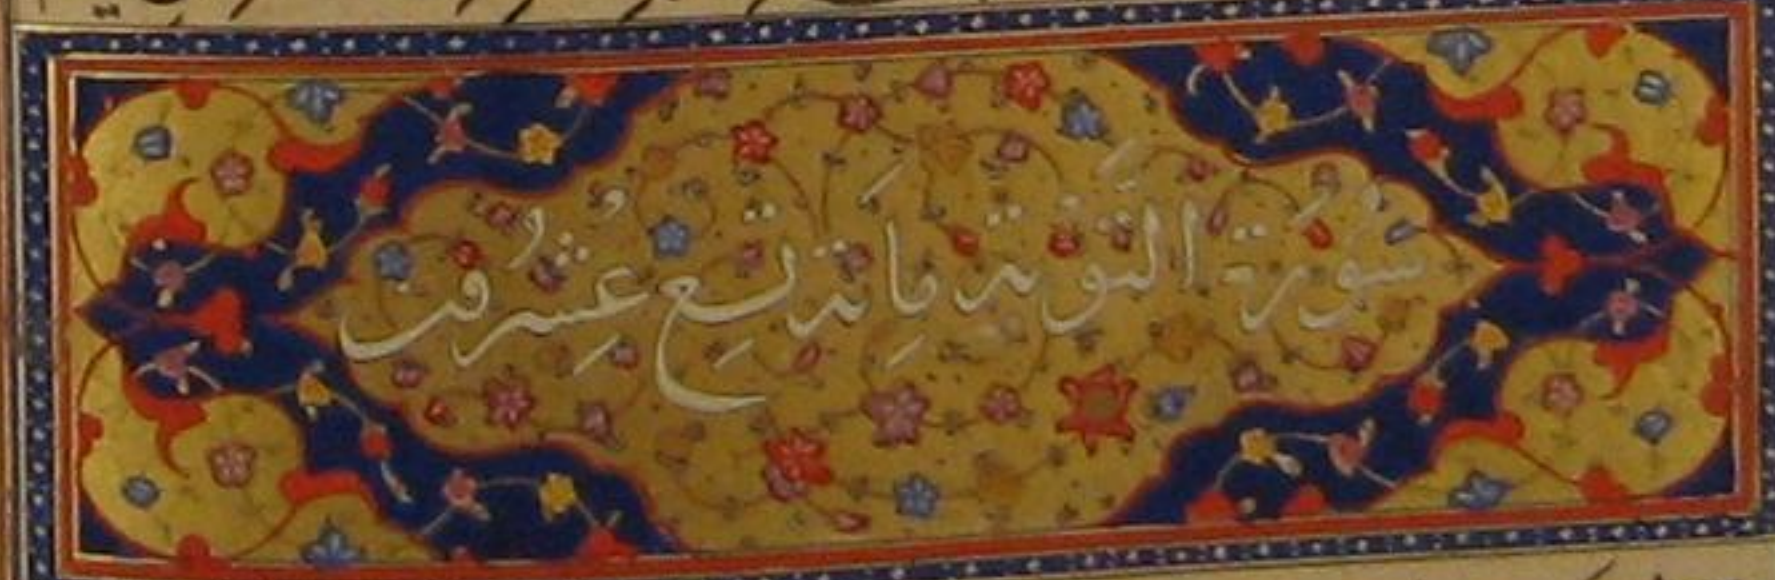 سُورَة التَّوْبَة مِائَة تِسع عِشرُون